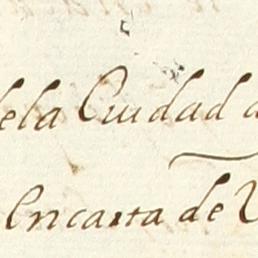 dela Ciudad d
Encarta de V